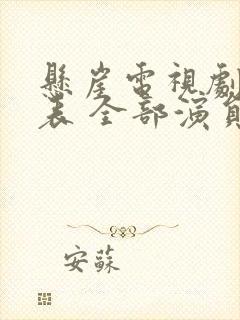 懸崖電視劇
表 全部演員
安蘇